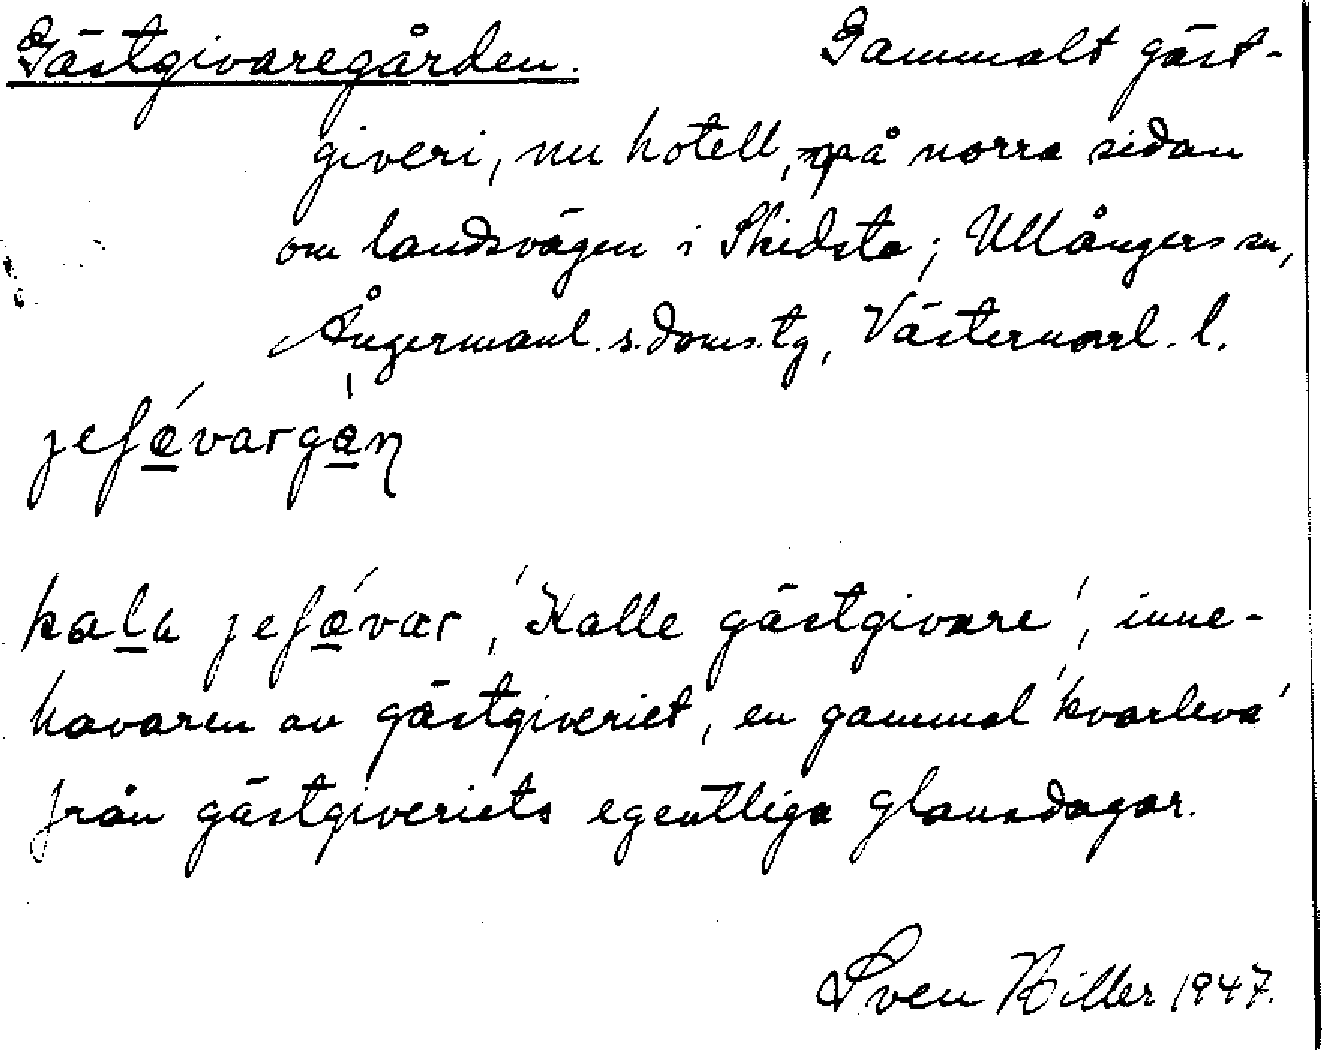 Gästgivaregården. Gammalt gäst-
giveri, nu hotell, på norra sidan
om landsvägen i Skidsta; Ullångers sn,
Ångermanl. s. doms. tg, Västernorrl. l.
jeʃǽvargán
kala jeʃǽvar, 'Kalle gästgivare', inne-
havaren av gästgiveriet, en gammal 'kvarleva'
från gästgiveriets egentliga glansdagar.
Sven Hiller 1947.